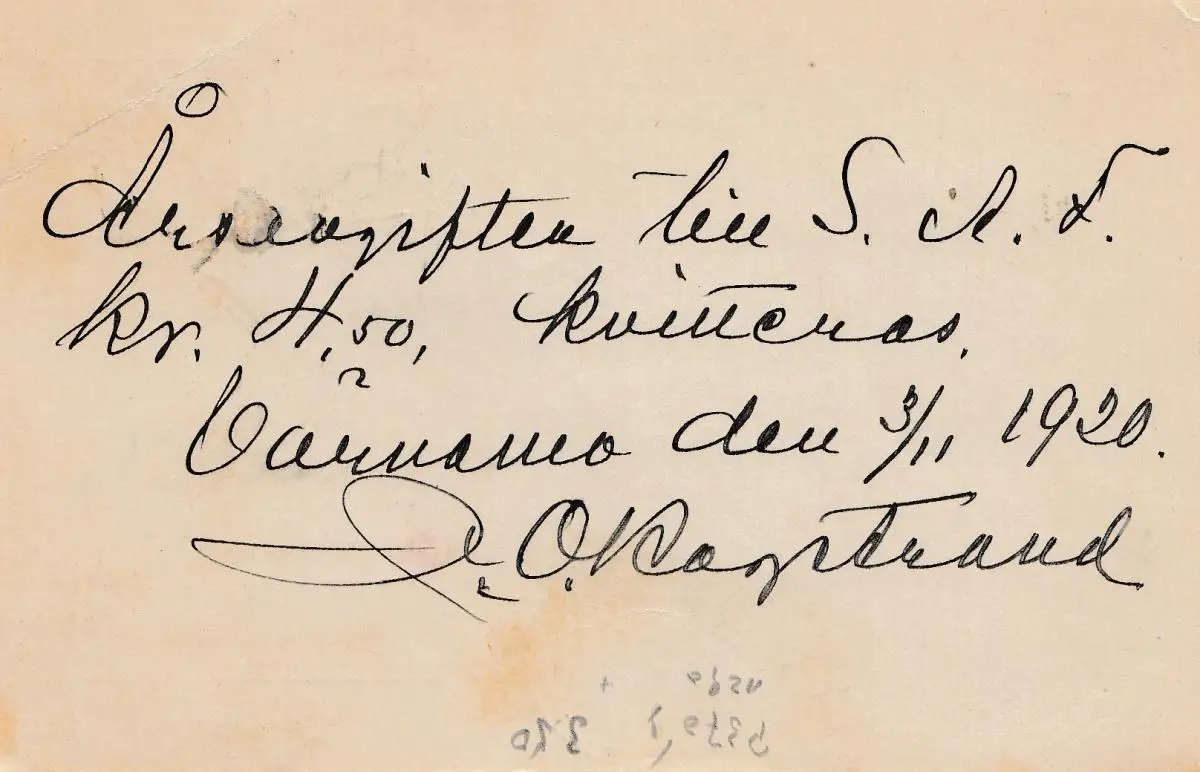 Årsavgiften till S. A. F.
kr. 4,50, kvitteras.
Värnamo den 3/11 1920.
O. Kagstrand